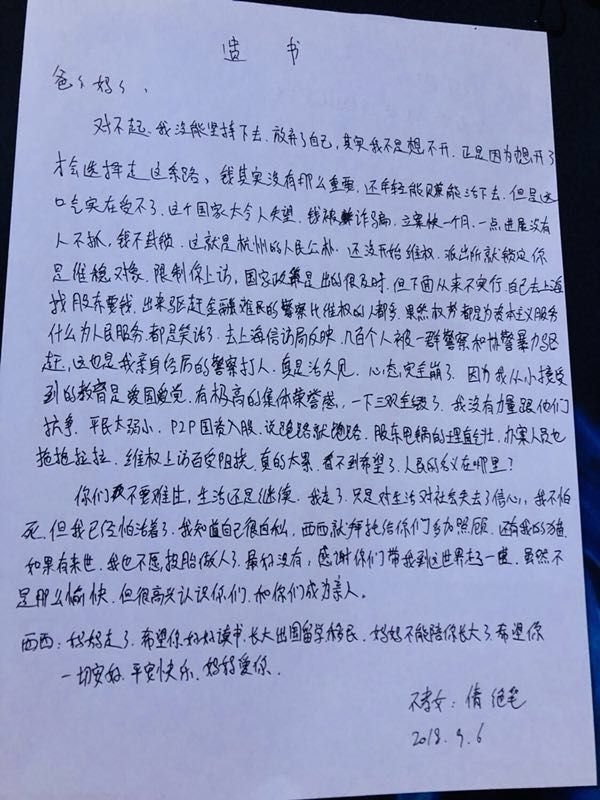 遗书
爸爸妈妈、
对不起、我没能坚持下去、放弃了自己,其实我不是想不开、正是因为想开了
才会选择走这条路、钱其实没有那么重要、还年轻能赚能活下去、但是这
口气实在受不了、这个国家太令人失望、钱被诈骗、立案快一个月、一点进展没有
人不抓,我不封锁、这就是杭州的人民公朴、还没开始维权、派出所就锁定你
是维稳对象、限制你上访,国家政策是出的很及时、但下面从来不实行、自己去上海
找股东要钱、出来驱赶金融难民的警察比维权的人都多、果然权势都是为资本主义服务
什么为人民服务、都是笑话了、去上海信访局反映、几百个人被一群警察和协警暴力驱
赶,这也是我亲身经历的警察打人、真是活久见、心态完全崩了、因为我从小接受
到的教育是爱国爱党、有极高的集体荣誉感,一下三观全毁了、我没有力量跟他们
抗争、平民太弱小、P2P国资入股、说跑路就跑路、股东甩锅的理直气壮、办案人员也
拖拖拉拉、维权上访百受阻挠、真的太累、看不到希望了、人民的名义在哪里?
你们不要难过,生活还是继续、我走了、只是对生活对社会失去了信心,我不怕
死、但我已经怕活着了、我知道自己很自私,西西就拜托给你们多加照顾、还有我的猫
如果有来世、我也不愿投胎做人了、最好没有,感谢你们带我到这世界走了一遭、虽然不
是那么愉快、但很高兴认识你们、和你们成为亲人。
西西:妈妈走了、希望你好好读书、长大出国留学移民、妈妈不能陪你长大了、希望你
一切安好、平安快乐、妈妈爱你、
不孝女:倩 绝笔
2018.9.6